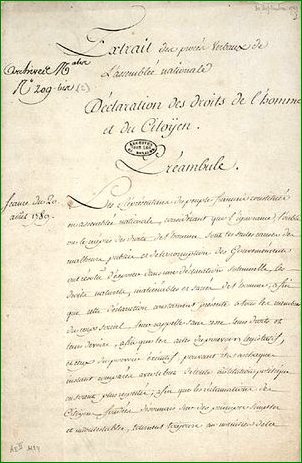 Extrait des procès Verbaux de
L'assemblée nationale
archives Nales
No 209 bis (c)
Déclaration des droits de l'homme
et du Citoyen.
Préambule.
Séance du 20
août 1789.
Les Représentans du peuple français constitués
en assemblée nationale, considérant que l'ignorance, l'oubli
ou le mépris des droits de l'homme, sont les seules causes des
malheurs publics et de la corruption des Gouvernements
ont résolu d'exposer dans une déclaration solemnelle, les
droits naturels, inaliénables et sacrés de l'homme, afin
que cette déclaration constamment présente à tous les membres
du corps social, leur rappelle sans cesse leurs droits et
leurs devoirs, afin que les actes du pouvoir législatif,
et ceux du pouvoir exécutif, pouvant être à chaque
instant comparés avec le but de toute institution politique
en soient plus respectés; afin que les réclamations des
Citoyens fondées désormais sur des principes simples
et incontestables, tournent toujours au maintien de la